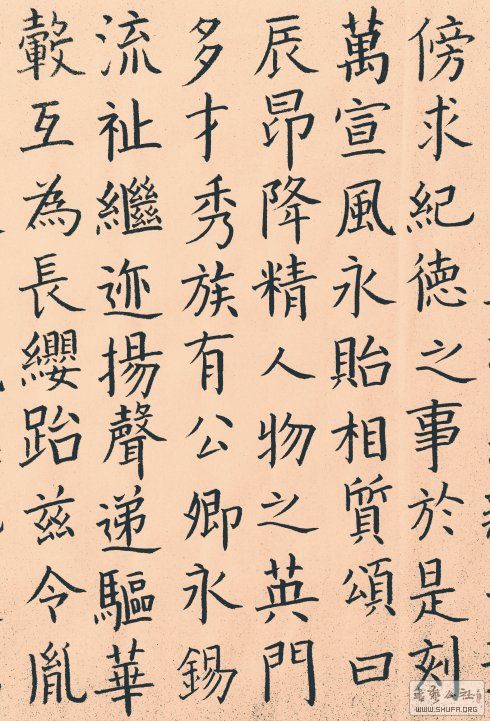 傍求紀德之事於是刻
萬宣風永貽相質頌曰
辰昂降精人物之英門
多才秀族有公卿永錫
流祉繼迹揚聲递驅華
轂互為長纓跆兹令胤
WWW.SHUFA.ORG